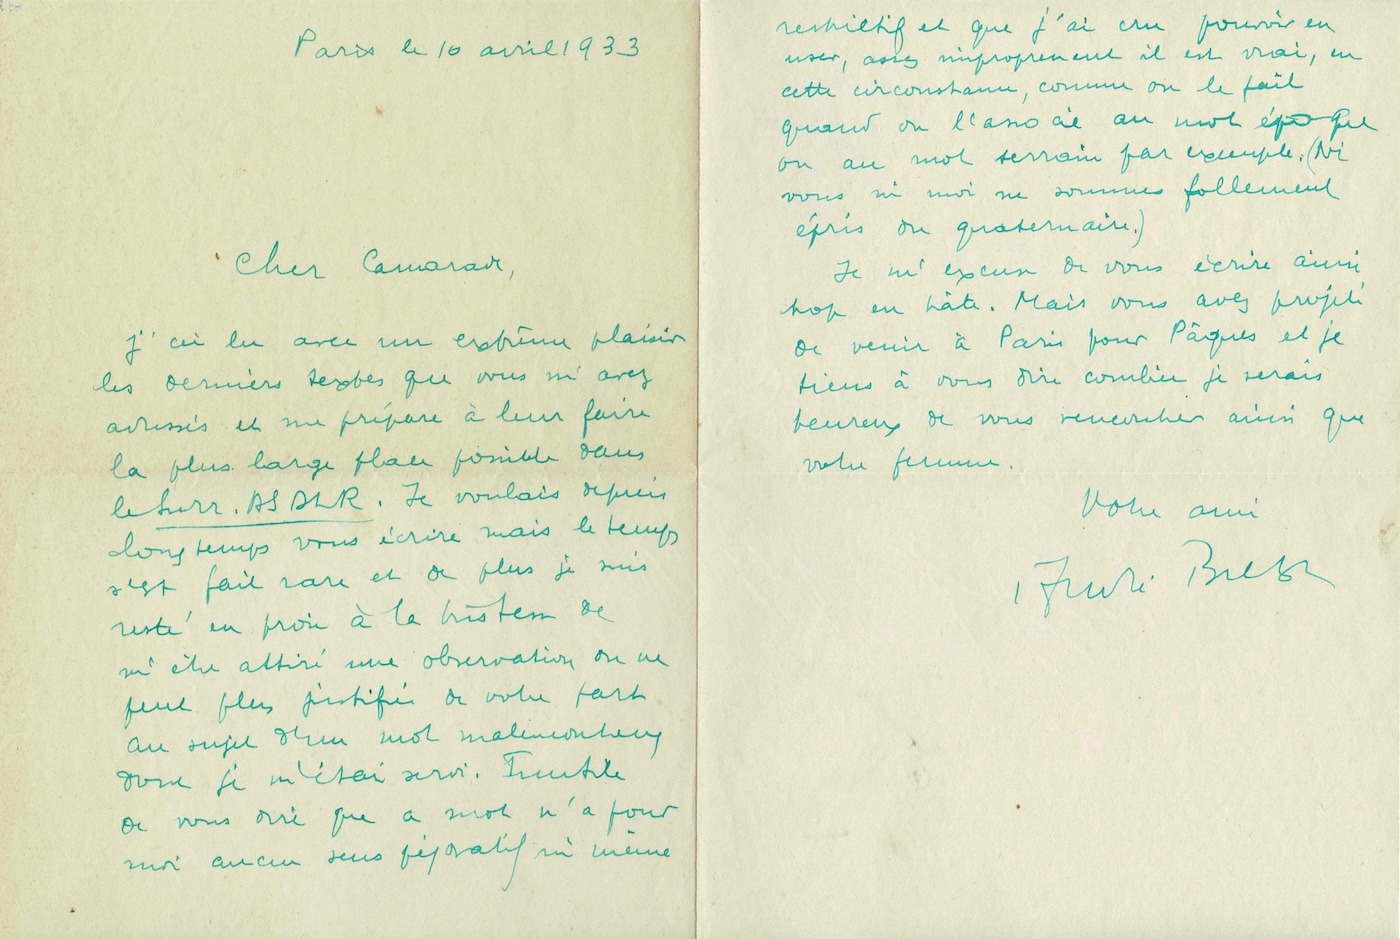 Paris le 10 avril 1933
Cher Camarade,
j'ai lu avec un extrême plaisir
les derniers textes que vous m'avez
adressés et me prépare à leur faire
la plus large place possible dans
le Surr. ASDLR. Je voulais depuis
longtemps vous écrire mais le temps
s'est fait rare et de plus je suis
resté en proie à la tristesse de
m'être attiré une observation on ne
peut plus justifiée de votre part
au sujet d'un mot malencontreux
dont je m'étai servi. Inutile
de vous dire que ce mot n'a pour
moi aucun sens péjoratif ni même
restrictif et que j'ai cru pouvoir en
user, assez improprement il est vrai, en
cette circonstance, comme on le fait
quand on l'associe au mot époque
ou au mot terrain par exemple. (Ni
vous ni moi ne sommes follement
épris du quaternaire.)
Je m'excuse de vous écrire ainsi
trop en hâte. Mais vous avez projeté
de venir à Paris pour Pâques et je
tiens à vous dire combien je serais
heureux de vous rencontrer ainsi que
votre femme.
Votre ami
André Breton